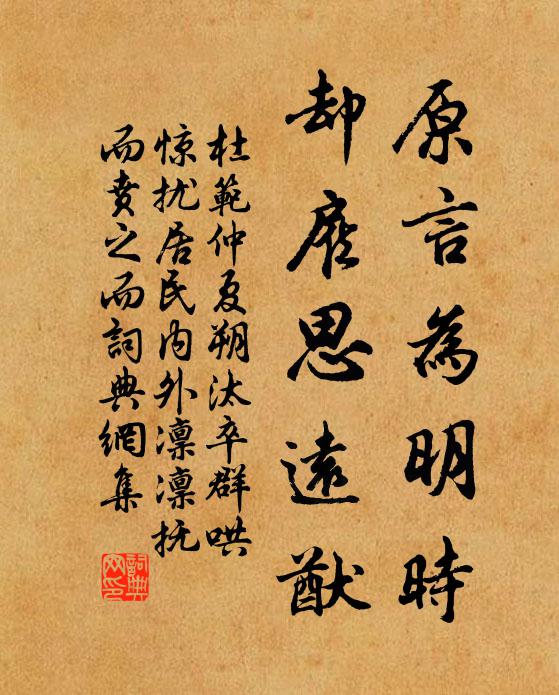 原言為明時
却扆思遠猷
杜範仲夏朔汰卒群哄
惊扰居民内外凛凛抚
而賁之而詞典網集
詞典網印